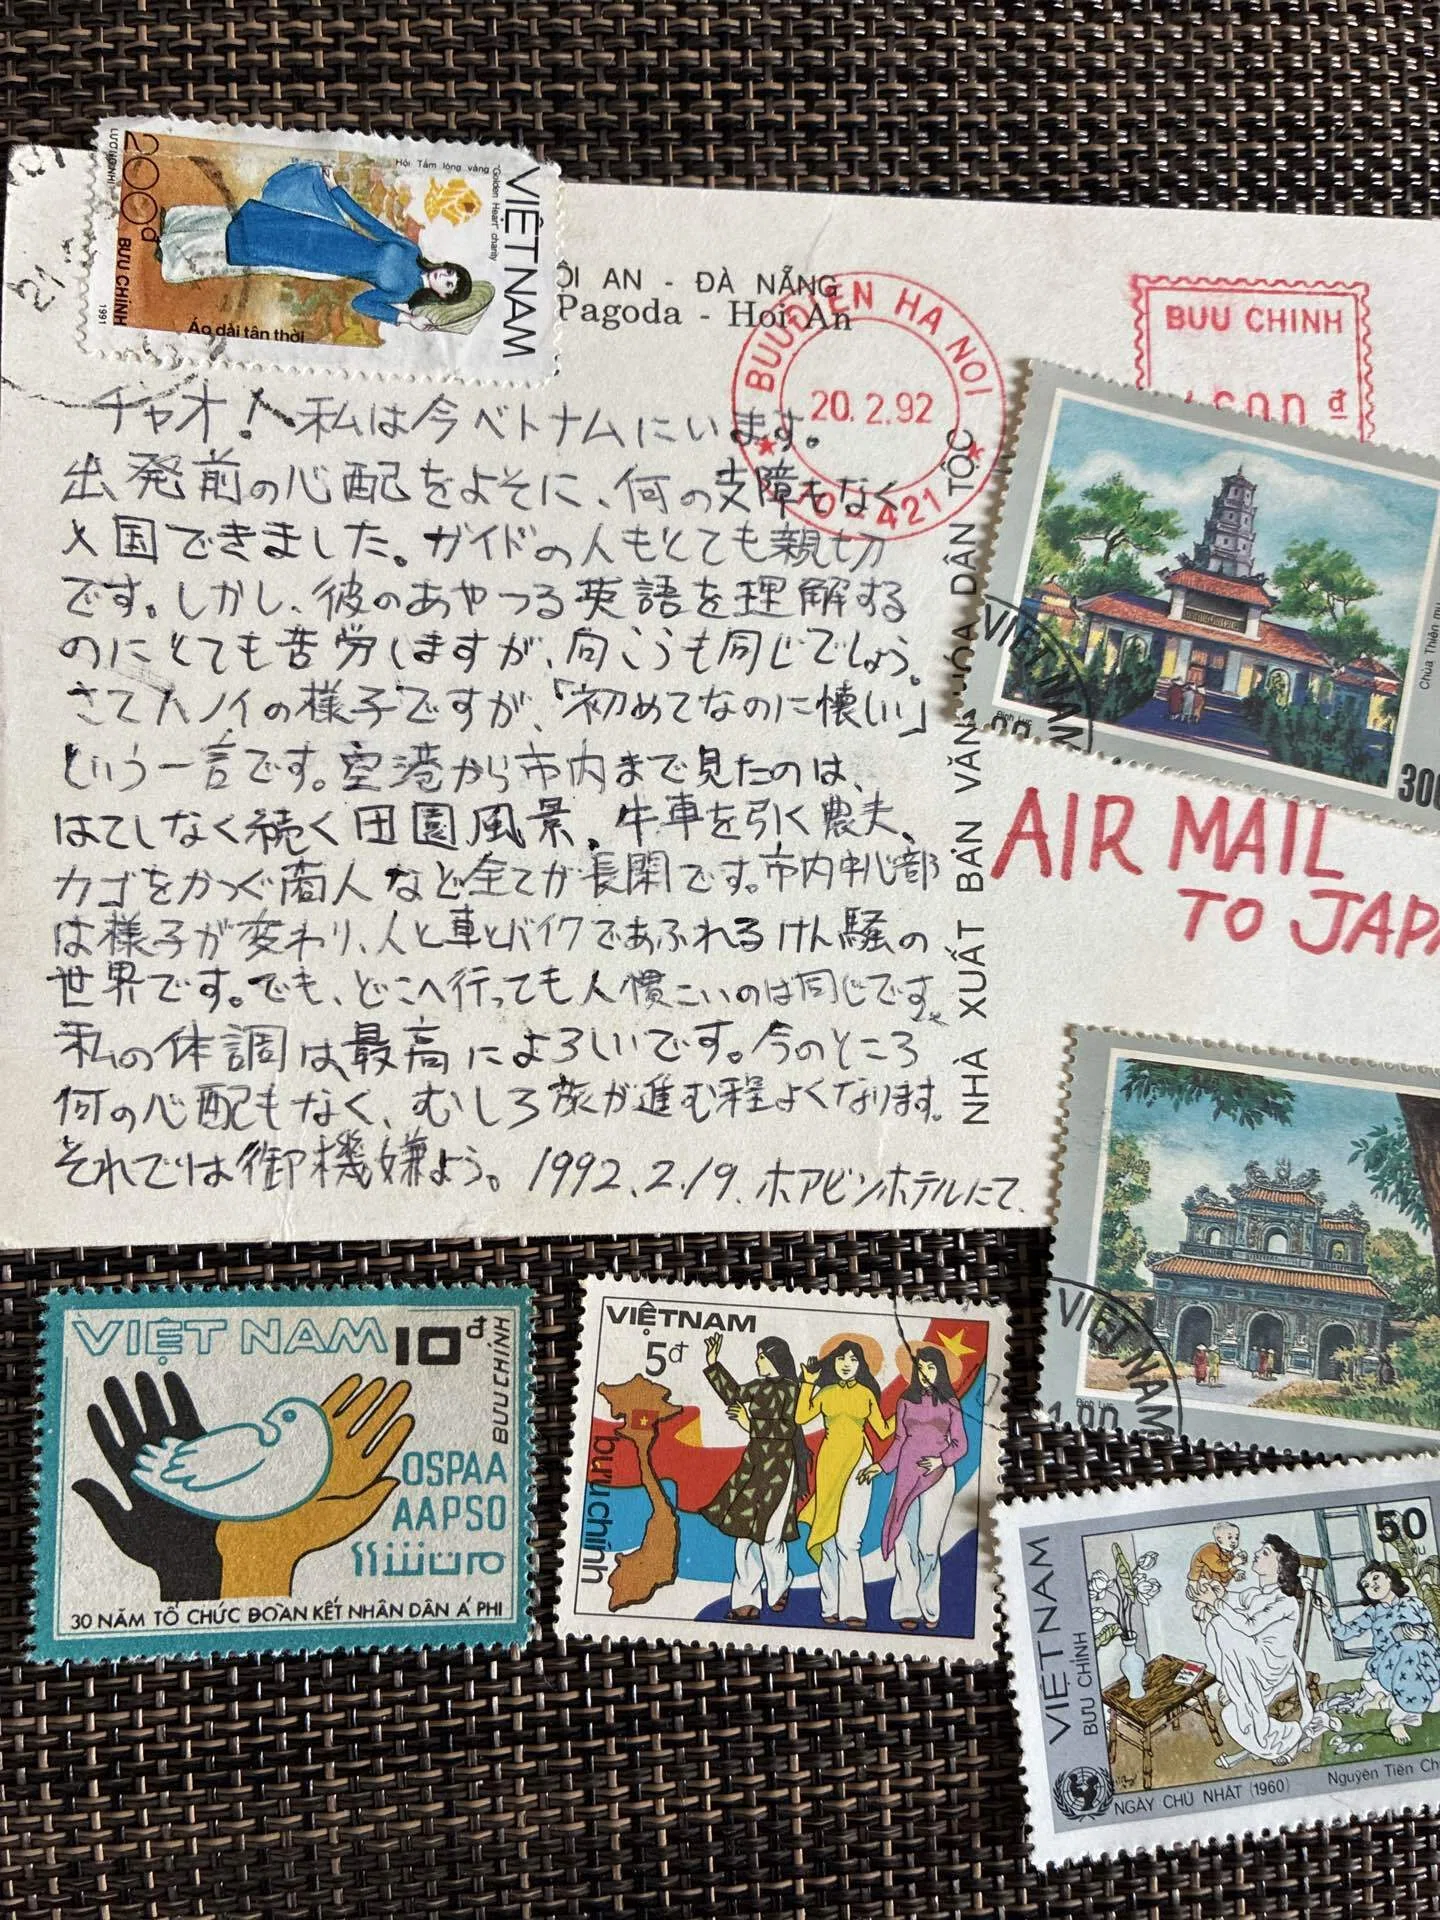 VIỆT NAM
"Golden Heart" charity
Hội Tấm lòng vàng
2000đ
BƯU CHÍNH
1991
Áo dài tân thời
21
ỘI AN - ĐÀ NẴNG
Pagoda - Hoi An
BUU ĐIEN HA NOI
20.2.92
421
BUU CHINH
đ
チャオ!私は今ベトナムにいます。
出発前の心配をよそに、何の支障もなく
入国できました。ガイドの人もとても親切
です。しかし、彼のあやつる英語を理解する
のにとても苦労しますが、向こうも同じでしょう。
さてハノイの様子ですが、「初めてなのに懐しい」
という一言です。空港から市内まで見たのは、
はてしなく続く田園風景。牛車を引く農夫、
カゴをかつぐ商人など全てが長閑です。市内中心部
は様子が変わり、人と車とバイクであふれるけん騒の
世界です。でも、どこへ行っても人懐こいのは同じです。
私の体調は最高によろしいです。今のところ
何の心配もなく、むしろ旅が進む程よくなります。
それでは御機嫌よう。1992.2.19.ホアビンホテルにて.
NHÀ XUẤT BẢN VĂN HÓA DÂN TỘC
VIET NAM
Chùa Thiên mụ
Đinh Lực
300
AIR MAIL
TO JAPA
VIET NAM
Đinh Lực
1.90
VIỆT NAM 10đ
BƯU CHÍNH
OSPAA
AAPSO
30 NĂM TỔ CHỨC ĐOÀN KẾT NHÂN DÂN Á PHI
VIỆTNAM
5đ
bưu chính
VIỆT NAM
BƯU CHÍNH
50
XU
NGÀY CHỦ NHẬT (1960) Nguyễn Tiến Ch